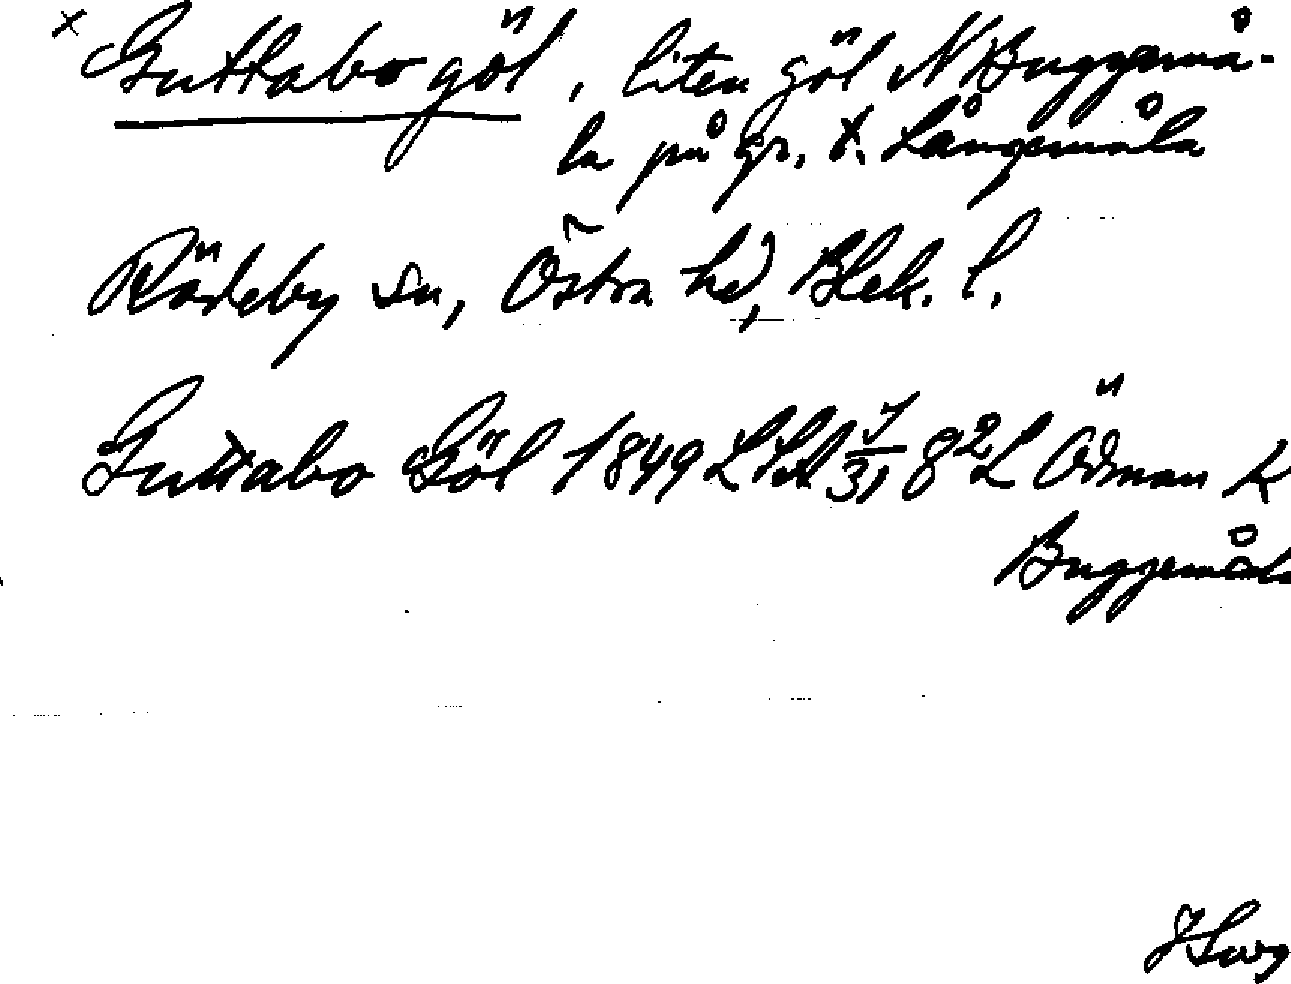 x Guttabo göl, liten göl N Buggemå-
la på gr. t. Långemåla
Rödeby sn, Östra hd, Blek. l.
Guttabo Göl 1849 LSA 8 2 L Ödman k
Buggemåla